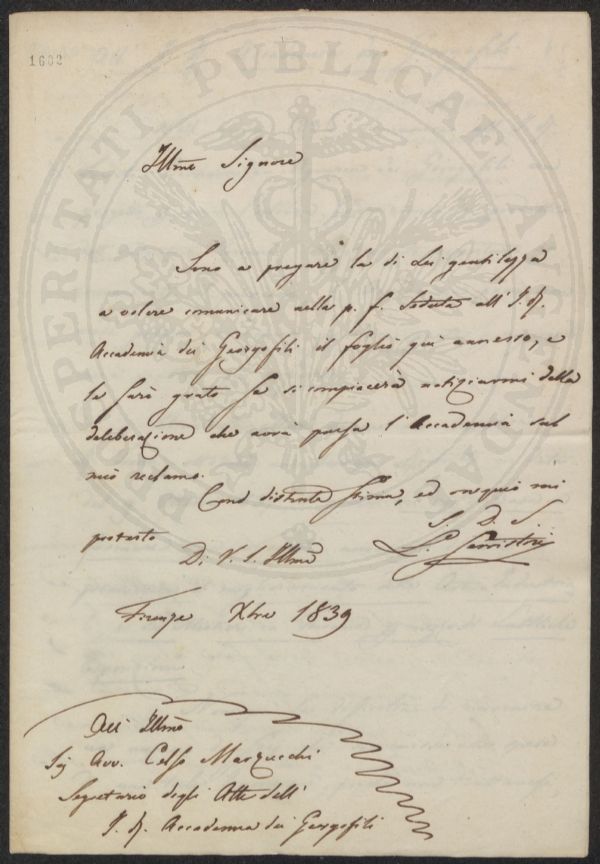 1602
PROSPERITATI PVBLICAE AVGENDAE
Illmo Signore
Sono a pregare la di Lei gentilezza
a volere comunicare nella p. f. Seduta all' I. R.
Accademia dei Georgofili il foglio quì annesso, e
le sarò grato se si compiacerà notiziarmi della
deliberazione che avrà presa l'Accademia sul
mio reclamo.
Con distinta stima, ed ossequio mi
protesto
Di V. S. Illma
S. D. S.
L. Serristori
Firenze Xbre 1839
All' Illmo
Sig Avv. Celso Marzucchi
Segretario degli Atti dell'
I. R. Accademia dei Georgofili